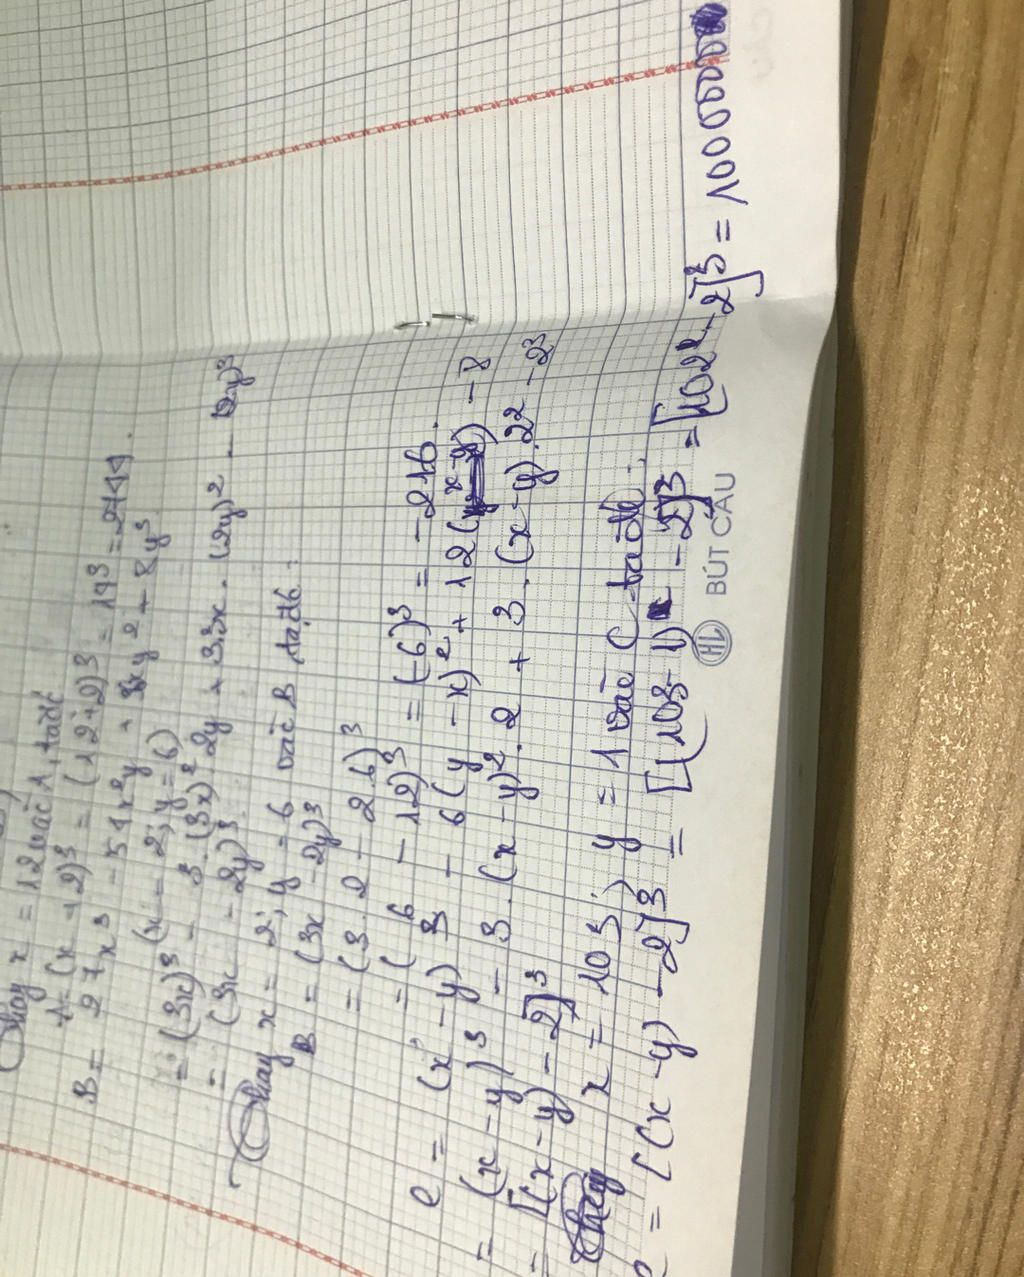 Thay x = 12 vào A, ta đc
A = (x + 2)³ = (12+2)³ = 14³ = 2744.
B = 27x³ - 54x²y + 36xy² + 8y³
(x = 2; y = 6)
= (3x)³ - 3.(3x)².2y + 3.3x.(2y)² - (2y)³
= (3x - 2y)³
Thay x = 2; y = 6 vào B ta đc :
B = (3x - 2y)³
= (3.2 - 2.6)³
= (6 - 12)³ = (-6)³ = -216.
C = (x - y)³ - 6(y - x)² + 12(x-y) - 8
= (x - y)³ - 3.(x - y)².2 + 3.(x - y).2² - 2³
= [(x - y) - 2]³
Thay x = 103; y = 1 vào C ta đc :
C = [(x - y) - 2]³ = [(103 - 1) - 2]³ = [102 - 2]³ = 1000000
TH BÚT CẦU